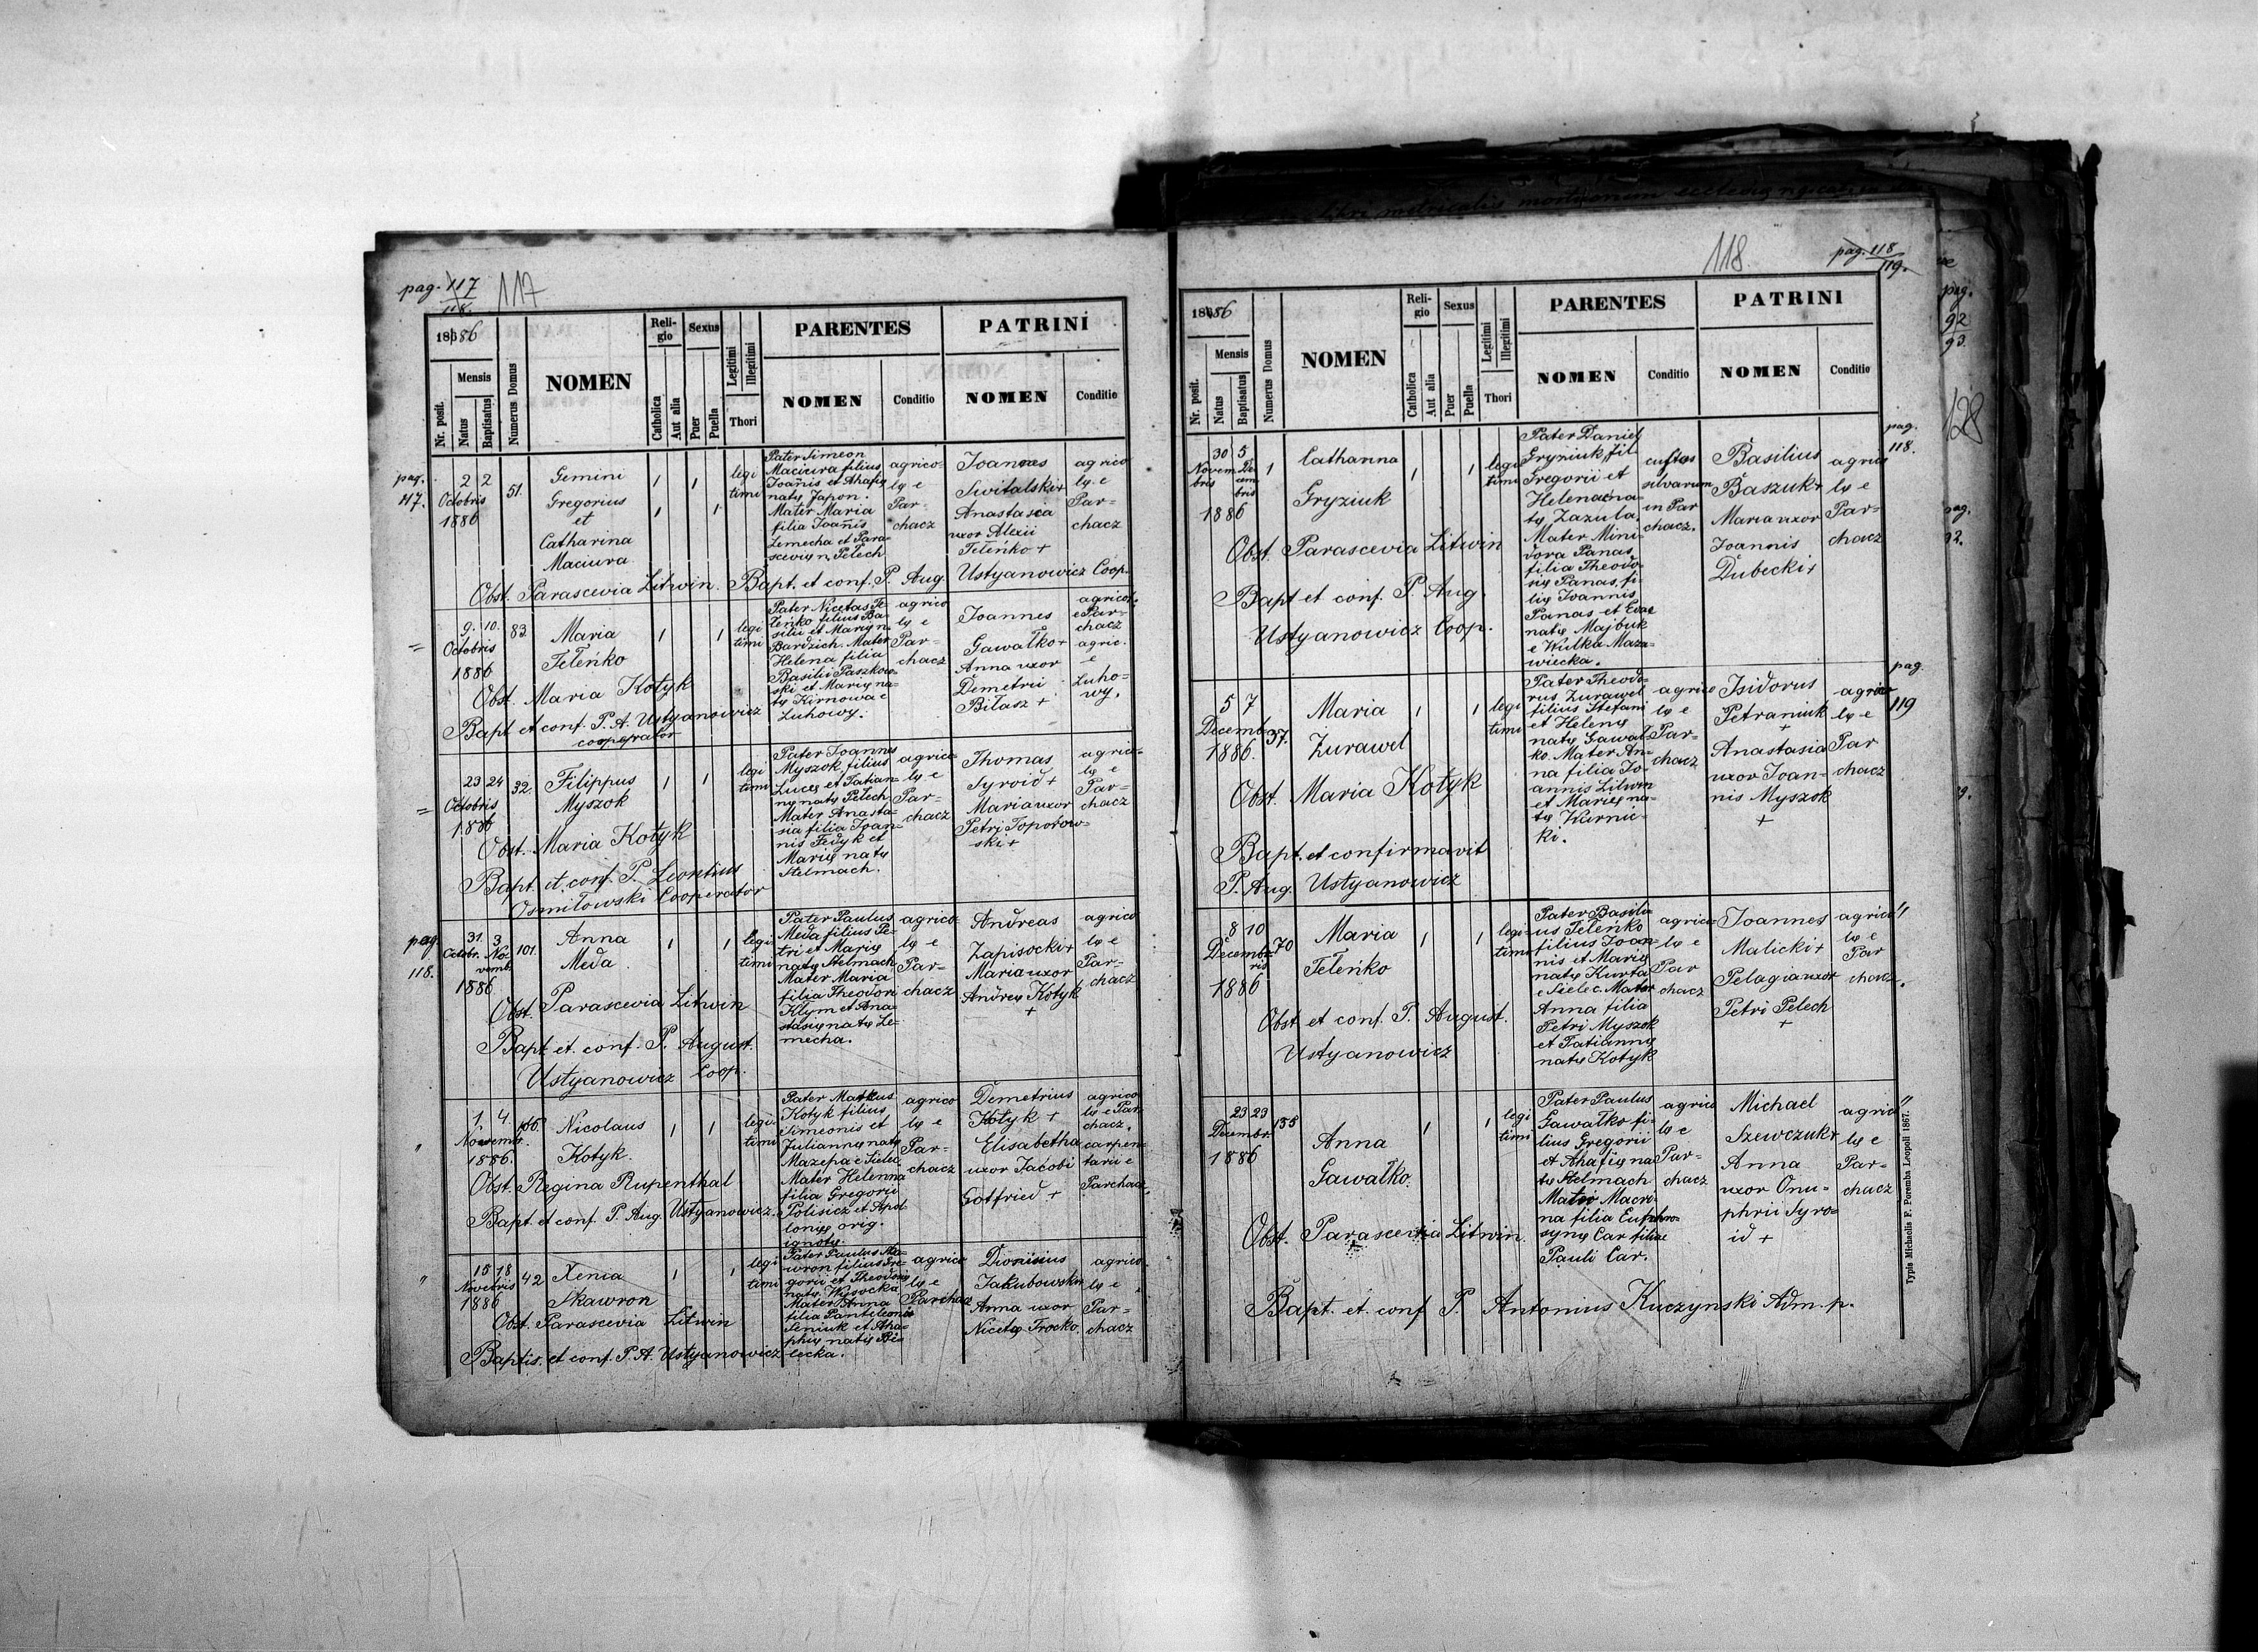 pag. 117
118.
117
1886
Nr. posit.
Mensis
Natus
Baptisatus
Numerus Domus
NOMEN
Religio
Catholica
Aut alia
Sexus
Puer
Puella
Legitimi
Illegitimi
Thori
PARENTES
NOMEN
Conditio
PATRINI
NOMEN
Conditio
pag.
117.
2 2
Octobris
1886
51.
Gemini
Gregorius
et
Catharina
Maciura
legi
timi
Pater Simeon
Maciura filius
Joannis et Ahafię
natę Japon.
Mater Maria
filia Joannis
Lemecha et Para-
scevię n. Pelech
agrico-
lę e
Par-
chacz
Joannes
Switalski +
Anastasia
uxor Alexii
Teleńko +
agrico
lę e
Par-
chacz
Obst. Parascevia Litwin. Bapt. et conf. P. Aug. Ustyanowicz Coop.
9. 10.
Octobris
1886
83
Maria
Teleńko
legi
timi
Pater Nicetas Te-
leńko filius Ba-
silii et Marię n.
Bardzich. Mater
Helena filia
Basilii Paszkow-
ski et Marię na-
tę Kirnowa e
Luhowy.
agrico
lę e
Par-
chacz
Joannes
Gawałko +
Anna uxor
Demetrii
Biłasz +
agricol.
e Par-
chacz
agric.
e
Luho-
wy.
Obst. Maria Kotyk
Bapt. et conf. P. A. Ustyanowicz
cooperator
23 24
Octobris
1886
32.
Filippus
Myszok
legi
timi
Pater Joannes
Myszok, filius
Lucę et Tatian-
nę natę Pelech
Mater Anasta-
sia filia Joan-
nis Fedyk et
Marię natę
Stelmach.
agrico-
lę e
Par-
chacz
Thomas
Syroid +
Maria uxor
Petri Toporow-
ski +
agrico-
lę e
Par-
chacz
Obst. Maria Kotyk
Bapt. et. conf. P. Leontius
Osmiłowski Cooperator
pag.
118.
31. 3
Octobr. No-
vemb.
1886
101.
Anna
Meda
legi
timi
Pater Paulus
Meda filius Pe-
tri et Marię
natę Stelmach
Mater Maria
filia Theodori
Klym et Ana-
stasię natę Le-
mecha.
agrico
lę e
Par-
chacz
Andreas
Zapisocki +
Maria uxor
Andreę Kotyk
+
agrico
lę e
Par-
chacz
Obst. Parascevia Litwin
Bapt. et. conf. P. August.
Ustyanowicz Coop.
1. 4.
Novemb.
1886.
Nicolaus
Kotyk.
legi.
timi
Pater Matheus
Kotyk filius
Simeonis et
Juliannę natę
Mazepa e Sielec
Mater Helenna
filia Gregorii
Polisicz et Apol
lonię orig.
ignotę.
agrico
lę e
Par-
chacz
Demetrius
Kotyk +
Elisabetha
uxor Jacobi
Gotfried +
agrico
lę e Par.
chacz.
carpen-
tarii e
Parchacz.
Obst. Regina Rupenthal
Bapt. et conf. P. Aug. Ustyanowicz.
15 18
Novebris
1886
42
Xenia
Skawron
legi
timi
Pater Paulus Ska-
wron filius Gre-
gorii et Theodosię
natę Wysocka
Mater Anna
filia Panteleonis
Seniuk et Aha-
phię natę Bi-
lecka.
agrico
lę e
Parchacz
Dionisius
Jakubowski
Anna uxor
Nicetę Trocko.
agrico-
lę e
Par-
chacz
Obst. Parascevia Litwin
Baptis. et conf. P. A. Ustyanowicz
118.
pag. 118
119.
1886
Nr. posit.
Mensis
Natus
Baptisatus
Numerus Domus
NOMEN
Religio
Catholica
Aut alia
Sexus
Puer
Puella
Legitimi
Illegitimi
Thori
PARENTES
NOMEN
Conditio
PATRINI
NOMEN
Conditio
pag.
118.
30 5
Novem De-
bris cem-
bris
1886
1
Catharina
Gryziuk
legi
timi
Pater Daniel
Gryziuk fil.
Gregorii et
Helenae na-
tę Zazula.
Mater Mini-
dora Panas
filia Theodo-
się Panas, fi-
lię Joannis
Panas et Evae
natę Majbuk
e Wulka Maza-
wiecka.
custos
silvarum
in Par
chacz.
Basilius
Baszuk +
Maria uxor
Joannis
Dubecki +
agrico
lę e
Par-
chacz
Obst. Parascevia Litwin
Bapt et conf. P. Aug.
Ustyanowicz Coop.
pag.
119
5 7
Decemb.
1886.
37.
Maria
Zurawel
legi
timi
Pater Theodo-
rus Zurawel
filius Stefani
et Helenę
natę Gawał-
ko. Mater An-
na filia Jo-
annis Litwin
et Marię na-
tę Kurnic-
ki.
agrico
lę e
Par-
chacz
Isidorus
Petraniuk
+
Anastasia
uxor Joan-
nis Myszok
+
agrico
lę e
Par
chacz
Obst. Maria Kotyk
Bapt. et confirmavit
P. Aug. Ustyanowicz
8 10
Decemb-
ris
1886
70
Maria
Teleńko
legi-
timi
Pater Basili-
us Teleńko
filius Joan-
nis et Marię
natę Kurta
e Sielec. Mater
Anna filia
Petri Myszok
et Tatiannę
natę Kotyk
agrico-
lę e
Par
chacz
Joannes
Malicki +
Pelagia uxor
Petri Pelech
+
agrico
lę e
Par
chacz.
Obst et conf. P. August.
Ustyanowicz
23 23
Decembr.
1886
135
Anna
Gawałko.
legi
timi
Pater Paulus
Gawałko fi-
lius Gregorii
et Ahafię na-
tę Stelmach
Mater Macri-
na filia Euphro-
synę Car filiae
Pauli Car.
agrico
lę e
Par-
chacz
Michael
Szewczuk +
Anna
uxor Onu-
phrii Syro-
id +
agrico
lę e
Par-
chacz
Obst. Parascevia Litwin.
Bapt. et. conf P. Antonius Kuczynski Adm. p.
Typis Michaelis F. Poremba Leopoli 1867.
pag.
92
93.
128